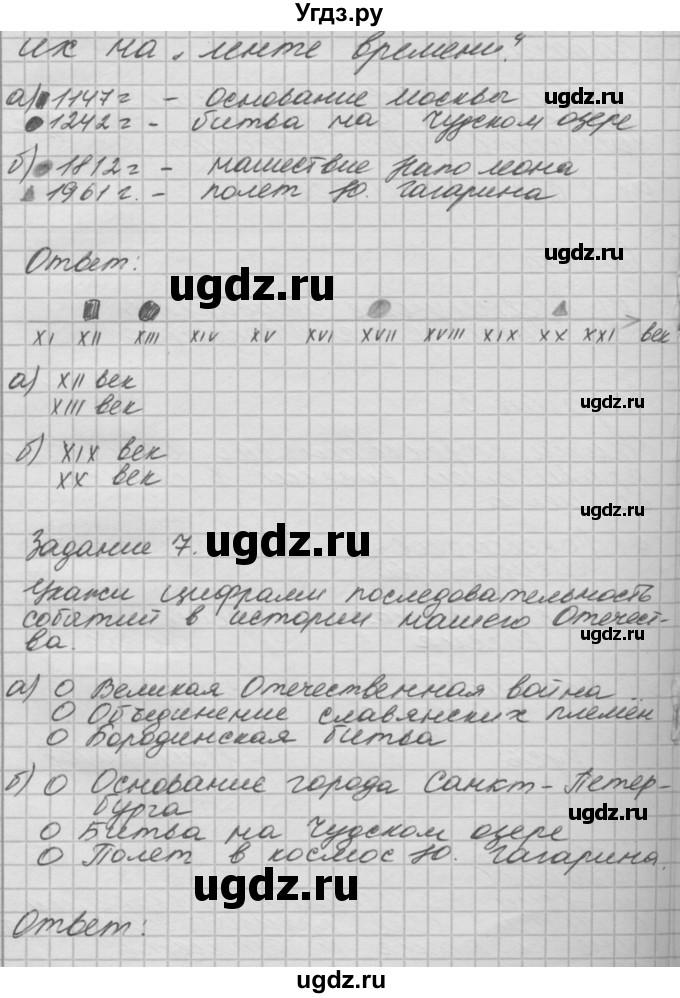 Угдз.ру
их на „ленте времени“.
а) 1147 г - основание Москвы
ugdz.ru
1242 г - битва на Чудском озере
б) 1812 г - нашествие Наполеона
1961 г. - полет Ю. Гагарина
Ответ:
ugdz.ru
ugdz.ru
XI XII XIII XIV XV XVI XVII XVIII XIX XX XXI век
а) XII век
XIII век
ugdz.ru
б) XIX век
XX век
ugdz.ru
Задание 7.
ugdz.ru
Укажи цифрами последовательность
событий в истории нашего Отечест-
ва.
ugdz.ru
а) О Великая Отечественная война
О Объединение славянских племён
О Бородинская битва
б) О Основание города Санкт-Петер-
бурга
ugdz.ru
О Битва на Чудском озере
О Полет в космос Ю. Гагарина.
ugdz.ru
Ответ:
ugdz.ru
ugdz.ru